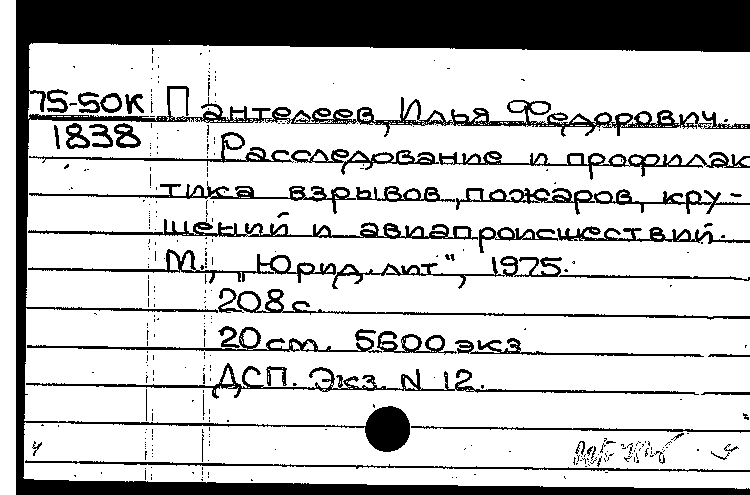 75-50К Пантелеев, Илья Федорович.
1838 Расследование и профилак
тика взрывов, пожаров, кру-
шений и авиапроисшествий.
М., „Юрид. лит“, 1975.
208 с.
20 cm. 5600 экз
ДСП. Экз. N 12.